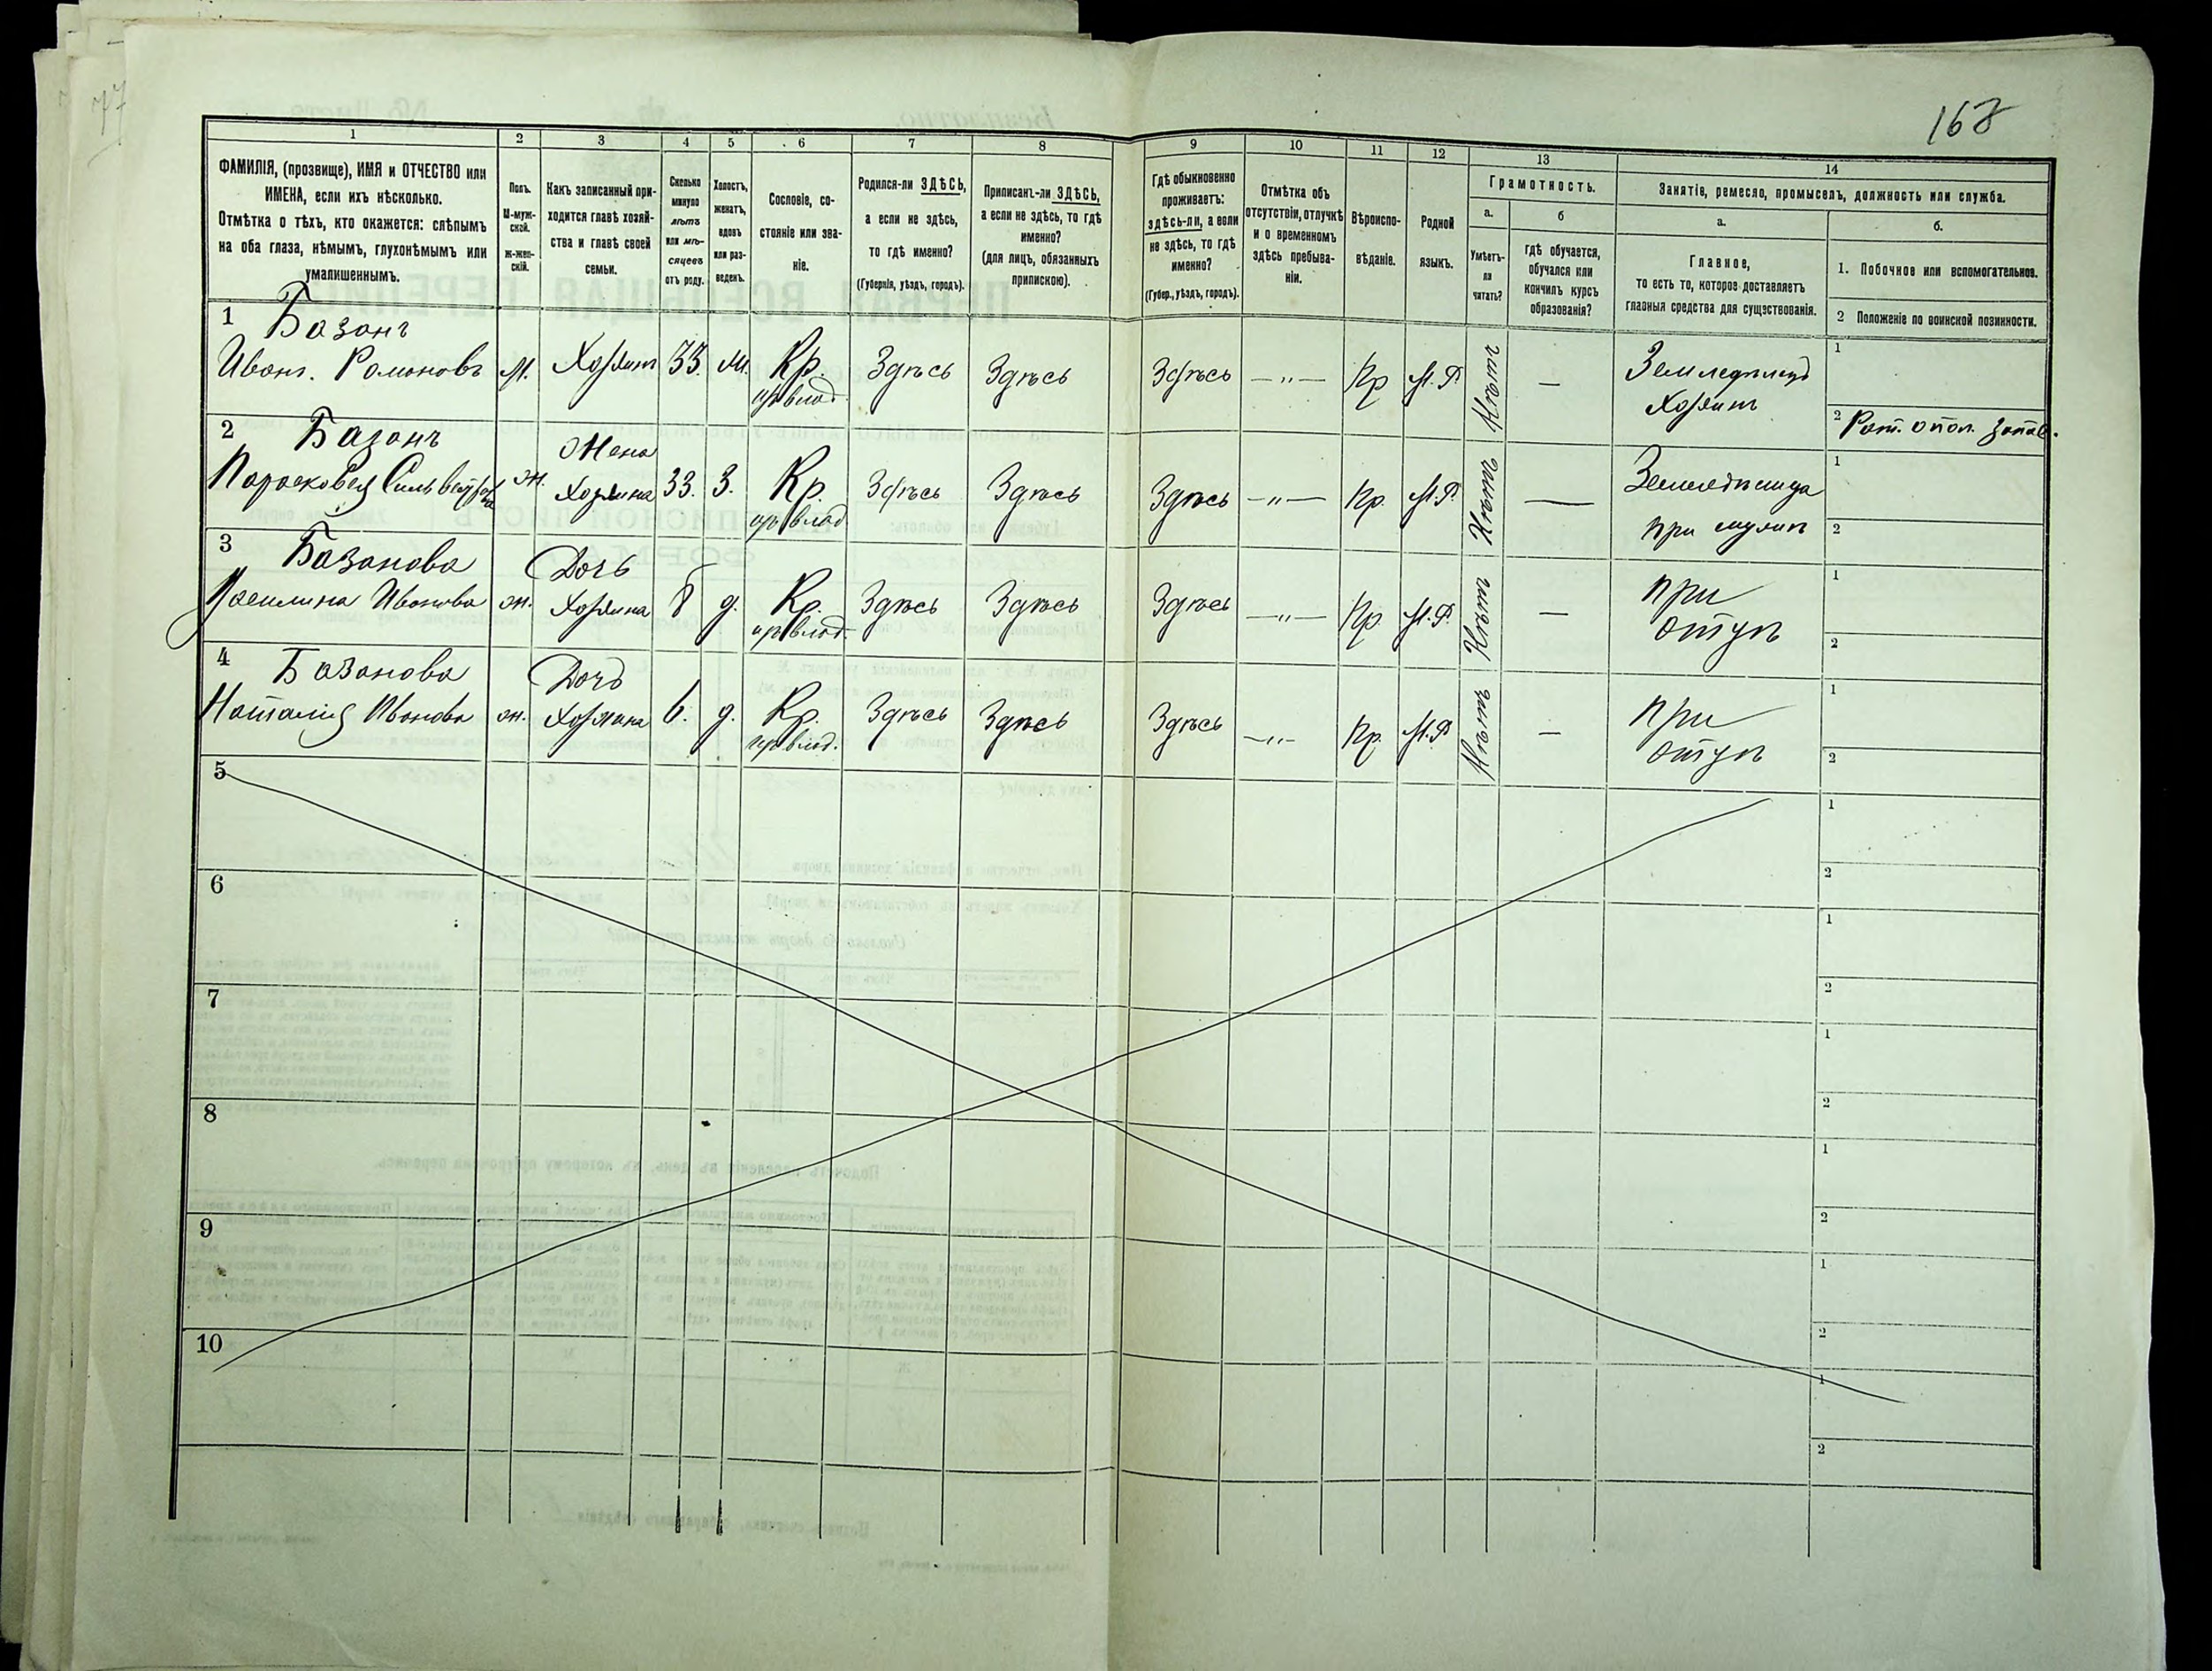 168
77
1
2
3
4
5
6
7
8
9
10
11
12
13
14
ФАМИЛІЯ, (прозвище), ИМЯ и ОТЧЕСТВО или
ИМЕНА, если ихъ нѣсколько.
Отмѣтка о тѣхъ, кто окажется: слѣпымъ
на оба глаза, нѣмымъ, глухонѣмымъ или
умалишеннымъ.
Полъ.
М-муж-
ской.
Ж-жен-
скій.
Какъ записанный при-
ходится главѣ хозяй-
ства и главѣ своей
семьи.
Сколько
минуло
лѣтъ
или мѣ-
сяцевъ
отъ роду.
Холостъ,
женатъ,
вдовъ
или раз-
веденъ.
Сословіе, со-
стояніе или зва-
ніе.
Родился-ли ЗДѢСЬ,
а если не здѣсь,
то гдѣ именно?
(Губернія, уѣздъ, городъ).
Приписанъ-ли ЗДѢСЬ,
а если не здѣсь, то гдѣ
именно?
(для лицъ, обязанныхъ
припискою).
Гдѣ обыкновенно
проживаетъ:
здѣсь-ли, а если
не здѣсь, то гдѣ
именно?
(Губер., уѣздъ, городъ).
Отмѣтка объ
отсутствіи, отлучкѣ
и о временномъ
здѣсь пребыва-
ніи.
Вѣроиспо-
вѣданіе.
Родной
языкъ.
Грамотность.
а.
Умѣетъ-
ли
читать?
б
гдѣ обучается,
обучался или
кончилъ курсъ
образованія?
Занятіе, ремесло, промыселъ, должность или служба.
а.
Главное,
то есть то, которое доставляетъ
главныя средства для существованія.
б.
1. Побочное или вспомогательное.
2 Положеніе по воинской повинности.
1 Базанъ
Иванъ. Романовъ м. Хозяин 33. м. Кр. Здѣсь Здѣсь Здѣсь —"— Пр М.Р. Нѣтъ — Земледѣлецъ
из влад. Хозяин
1
2 Рат. опол. запас.
2 Базанъ Жена
Параскевея Сильвестрова ж. Хозяина 33. З. Кр. Здѣсь Здѣсь Здѣсь —"— Пр. М.Р. Нѣтъ — Земледѣлица
из влад. при мужѣ
1
2
3 Базанова Дочь
Василина Иванова ж. Хозяина 8 д. Кр. Здѣсь Здѣсь Здѣсь —"— Пр. М.Р. Нѣтъ — при
из влад. отцѣ
1
2
4 Базанова Дочь
Наталія Иванова ж. Хозяина 6. д. Кр. Здѣсь Здѣсь Здѣсь —"— Пр. М.Р. Нѣтъ — при
из влад. отцѣ
1
2
5
1
2
6
1
2
7
1
2
8
1
2
9
1
2
10
1
2